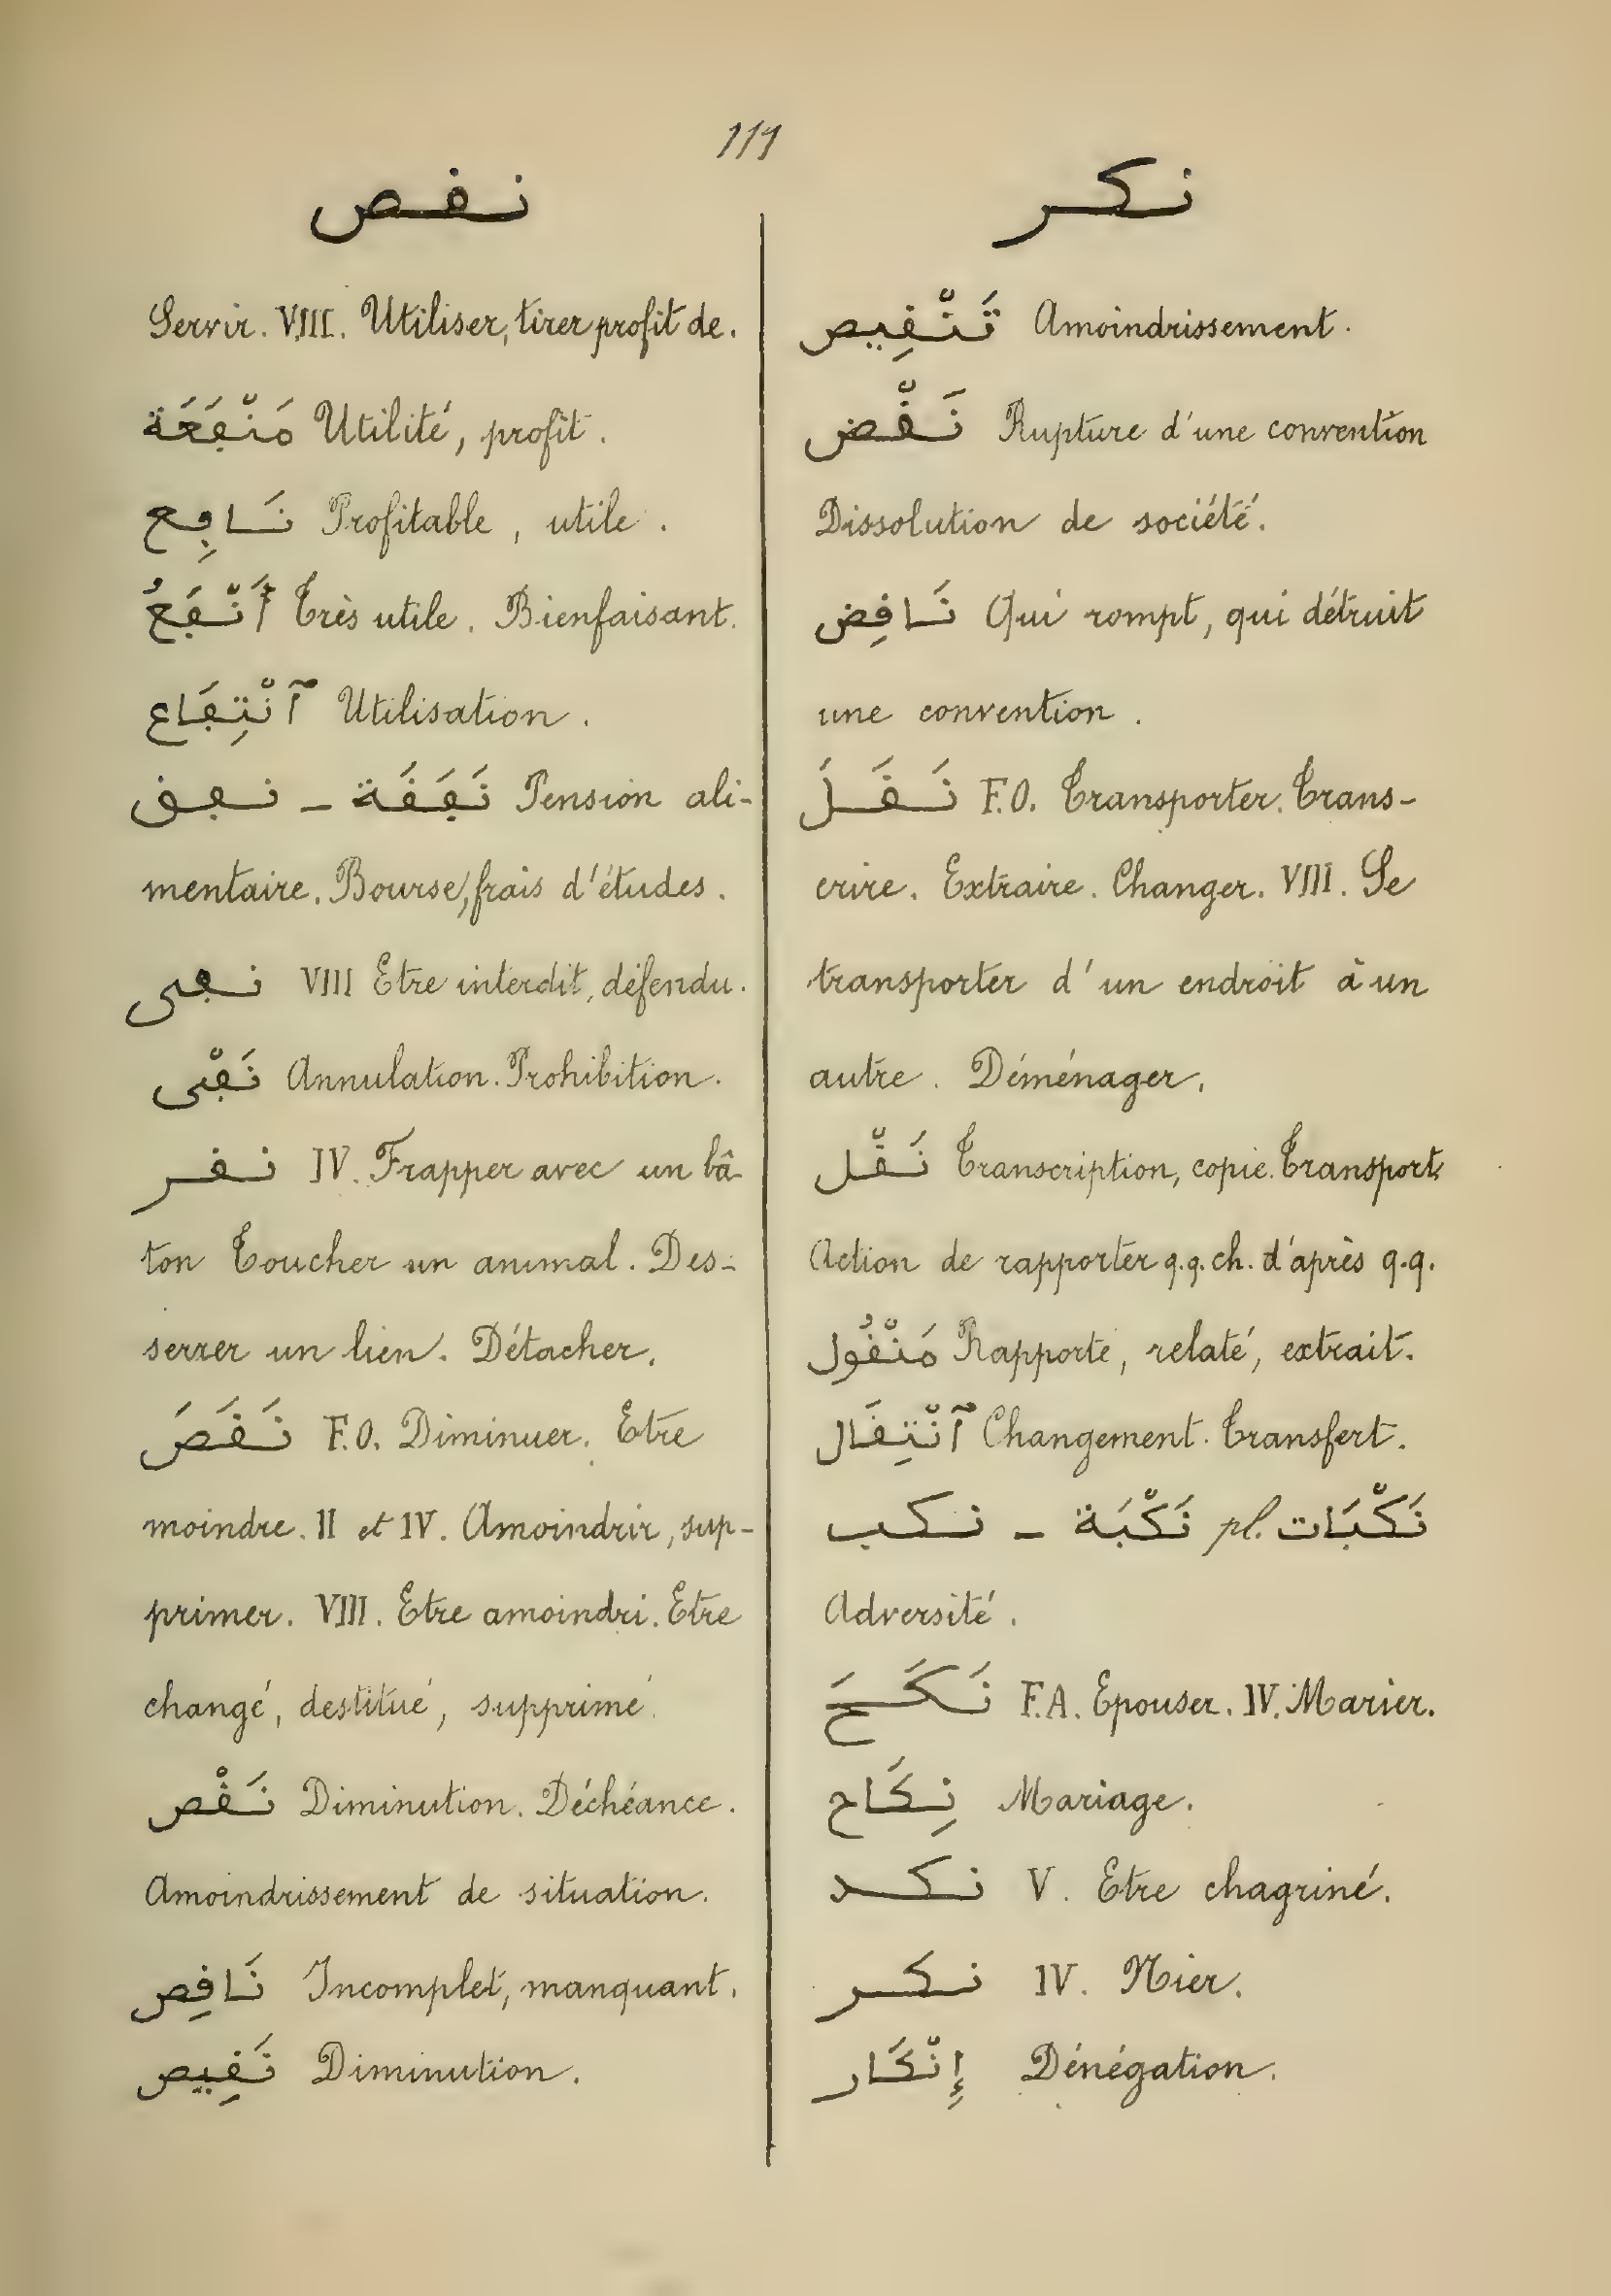 111
نقص
Servir. VIII. Utiliser, tirer profit de.
مَنْفَعَة Utilité, profit.
نَافِع Profitable, utile.
أَنْفَعُ Très utile. Bienfaisant.
ٱنْتِفَاع Utilisation.
نفق – نَفَقَة Pension ali-
mentaire. Bourse, frais d'études.
نفى VIII Etre interdit, défendu.
نَفْى Annulation. Prohibition.
نقر IV. Frapper avec un bâ-
ton Toucher un animal. Des-
serrer un lien. Détacher.
نَقَصَ F.O. Diminuer. Etre
moindre. II et IV. Amoindrir, sup-
primer. VIII. Etre amoindri. Etre
changé, destitué, supprimé.
نَقْص Diminution. Déchéance.
Amoindrissement de situation.
نَاقِص Incomplet, manquant.
نَقِيص Diminution.
نكر
تَنْقِيص Amoindrissement.
نَقْض Rupture d'une convention
Dissolution de société.
نَاقِض Qui rompt, qui détruit
une convention.
نَقَلَ F.O. Transporter. Trans-
crire. Extraire. Changer. VIII. Se
transporter d'un endroit à un
autre. Déménager.
نَقْل Transcription, copie. Transport.
Action de rapporter q.q. ch. d'après q.q.
مَنْقُول Rapporté, relaté, extrait.
ٱنْتِقَال Changement. Transfert.
نكب – نَكْبَة pl. نَكْبَات
Adversité.
نَكَحَ F.A. Epouser. IV. Marier.
نِكَاح Mariage.
نكد V. Etre chagriné.
نكر IV. Nier.
إِنْكَار Dénégation.